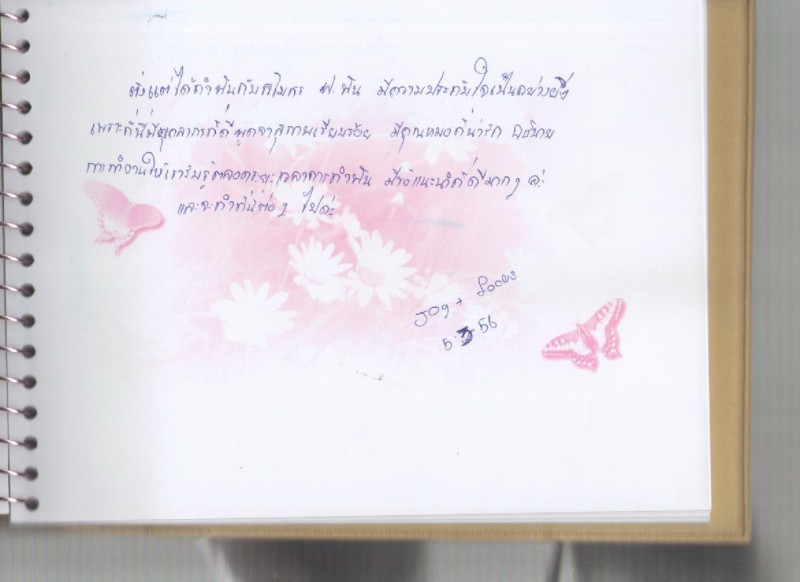 ตั้งแต่ได้ทำฟันกับสโมสร ฟ.ฟัน มีความประทับใจเป็นอย่างยิ่ง
เพราะที่นี่มีบุคลากรที่ดี พูดจาสุภาพเรียบร้อย มีคุณหมอที่น่ารัก อธิบาย
การทำงานให้เรารับรู้ตลอดระยะเวลาการทำฟัน มีข้อแนะนำที่ดีมากๆ ค่ะ
และจะทำที่นี่ต่อๆ ไปค่ะ
Joy +
5.3.56